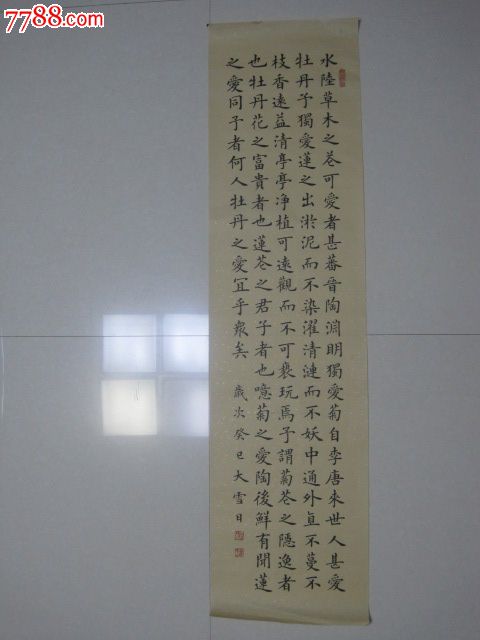 7788.com
水陸草木之芲可愛者甚蕃晉陶淵明獨愛菊自李唐來世人甚愛
牡丹予獨愛蓮之出淤泥而不染濯清漣而不妖中通外直不蔓不
枝香遠益清亭亭净植可遠觀而不可褻玩焉予謂菊芲之隱逸者
也牡丹花之富貴者也蓮芲之君子者也噫菊之愛陶後鮮有聞蓮
之愛同予者何人牡丹之愛宜乎衆矣 歲次癸巳大雪日